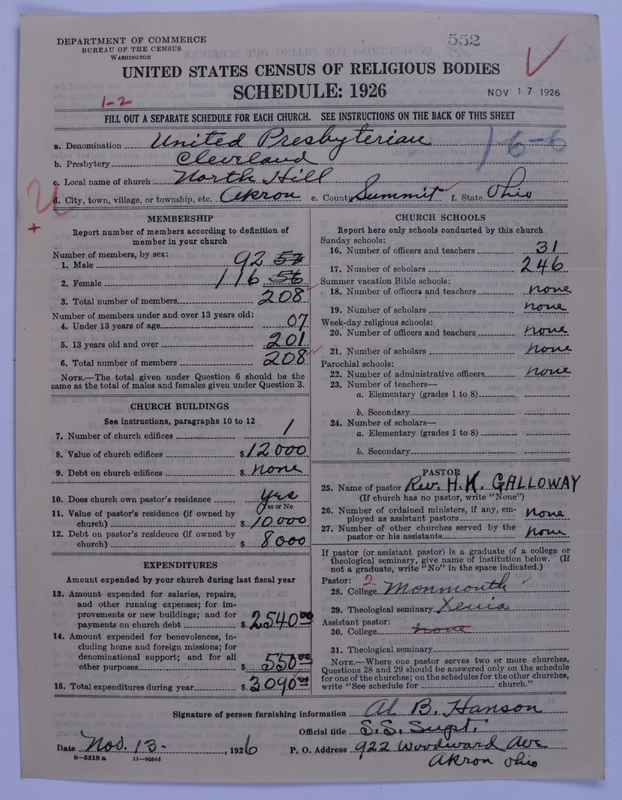 DEPARTMENT OF COMMERCE
BUREAU OF THE CENSUS
WASHINGTON
552
UNITED STATES CENSUS OF RELIGIOUS BODIES
SCHEDULE: 1926
NOV 17 1926
1-2
FILL OUT A SEPARATE SCHEDULE FOR EACH CHURCH. SEE INSTRUCTIONS ON THE BACK OF THIS SHEET
a. Denomination United Presbyterian
b. Presbytery Cleveland
16-6
c. Local name of church North Hill
d. City, town, village, or township, etc. Akron e. County Summit f. State Ohio
MEMBERSHIP
Report number of members according to definition of
member in your church
Number of members, by sex:
1. Male 92 57
2. Female 116 56
3. Total number of members 208
Number of members under and over 13 years old:
4. Under 13 years of age 07
5. 13 years old and over 201
6. Total number of members 208
NOTE.—The total given under Question 6 should be the
same as the total of males and females given under Question 3.
CHURCH BUILDINGS
See instructions, paragraphs 10 to 12
7. Number of church edifices 1
8. Value of church edifices $12000
9. Debt on church edifices $ None
10. Does church own pastor's residence yes
Yes or No
11. Value of pastor's residence (if owned by
church) $10000
12. Debt on pastor's residence (if owned by
church) $8000
EXPENDITURES
Amount expended by your church during last fiscal year
13. Amount expended for salaries, repairs,
and other running expenses; for im-
provements or new buildings; and for
payments on church debt $2540.00
14. Amount expended for benevolences, in-
cluding home and foreign missions; for
denominational support; and for all
other purposes $550.00
15. Total expenditures during year $3090.00
CHURCH SCHOOLS
Report here only schools conducted by this church
Sunday schools:
16. Number of officers and teachers 31
17. Number of scholars 246
Summer vacation Bible schools:
18. Number of officers and teachers none
19. Number of scholars none
Week-day religious schools:
20. Number of officers and teachers none
21. Number of scholars none
Parochial schools:
22. Number of administrative officers none
23. Number of teachers—
a. Elementary (grades 1 to 8)
b. Secondary
24. Number of scholars—
a. Elementary (grades 1 to 8)
b. Secondary
PASTOR
25. Name of pastor Rev. H. K. GALLOWAY
(If church has no pastor, write "None")
26. Number of ordained ministers, if any, em-
ployed as assistant pastors none
27. Number of other churches served by the
pastor or his assistants none
If pastor (or assistant pastor) is a graduate of a college or
theological seminary, give name of institution below. (If
not a graduate, write "No" in the space indicated.)
Pastor: 2
28. College Monmouth
29. Theological seminary Xenia
Assistant pastor:
30. College none
31. Theological seminary
NOTE.—Where one pastor serves two or more churches,
Questions 28 and 29 should be answered only on the schedule
for one of the churches; on the schedules for the other churches,
write "See schedule for church."
Signature of person furnishing information Al B. Hanson
Official title S.S. Supt.
Date Nov. 13-, 1926 P. O. Address 922 Woodward Ave
Akron Ohio
8—5518a 11—90565